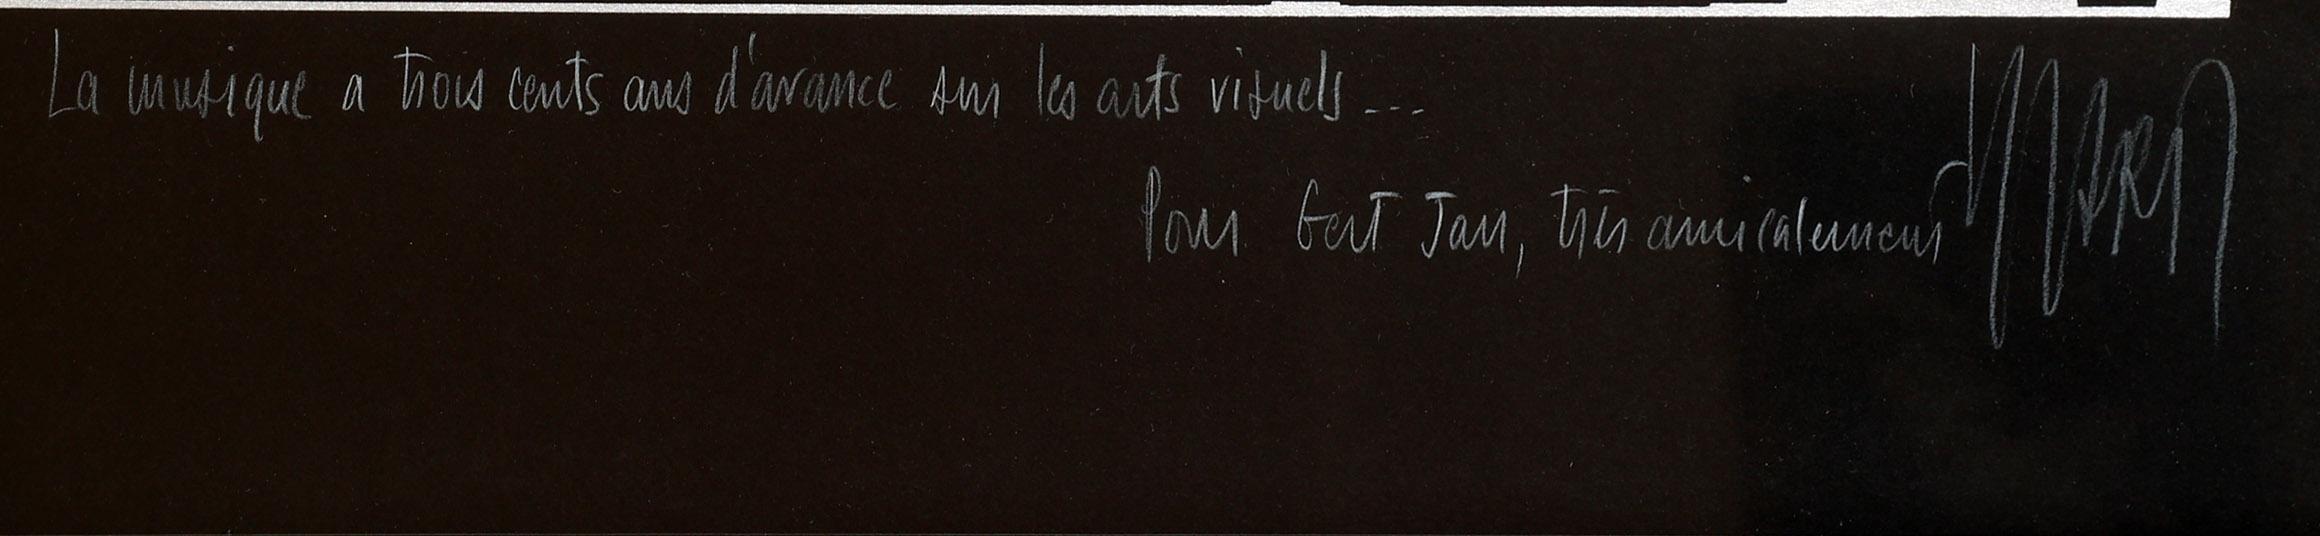 La musique a trois cents ans d'avance sur les arts visuels...
Pour Gert Jan, très amicalement